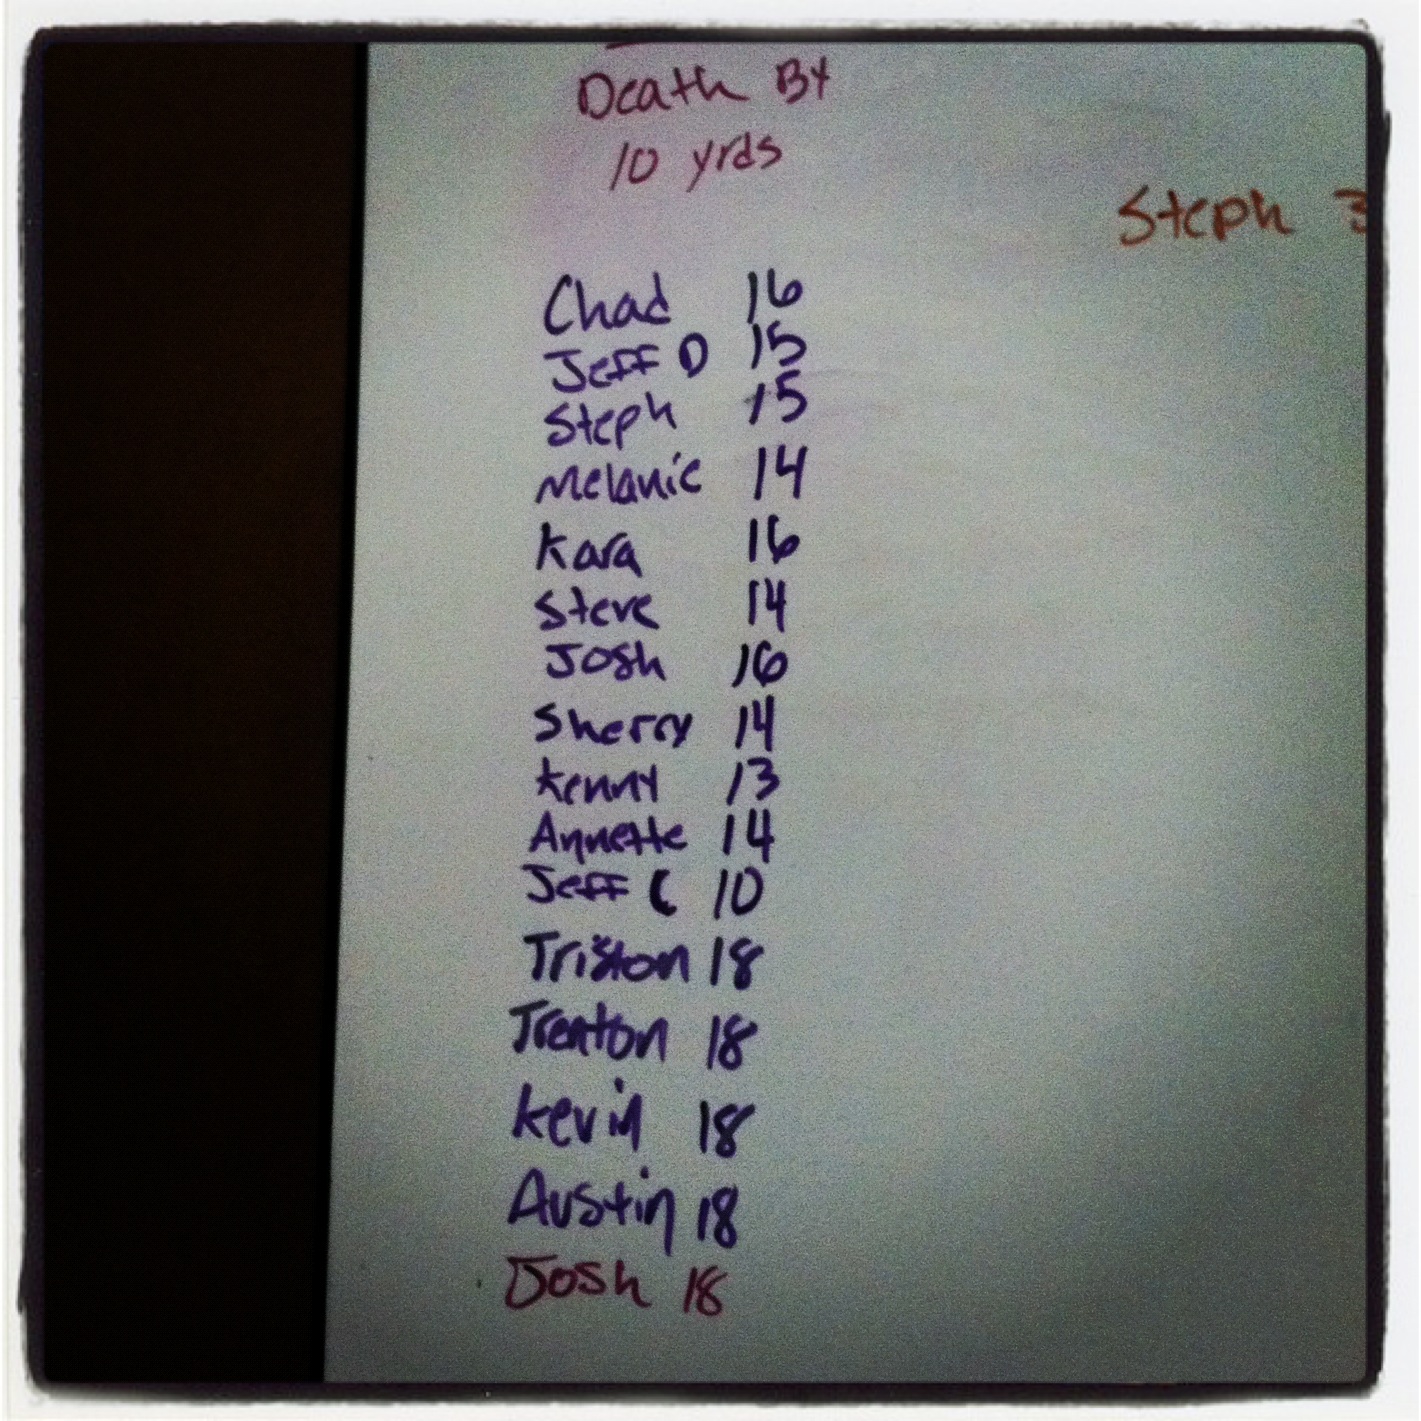 Death By
10 yrds
Steph 3
Chad 16
Jeff D 15
Steph 15
Melanie 14
Kara 16
Steve 14
Josh 16
Sherry 14
Kenny 13
Annette 14
Jeff C 10
Triston 18
Trenton 18
Kevin 18
Austin 18
Josh 18